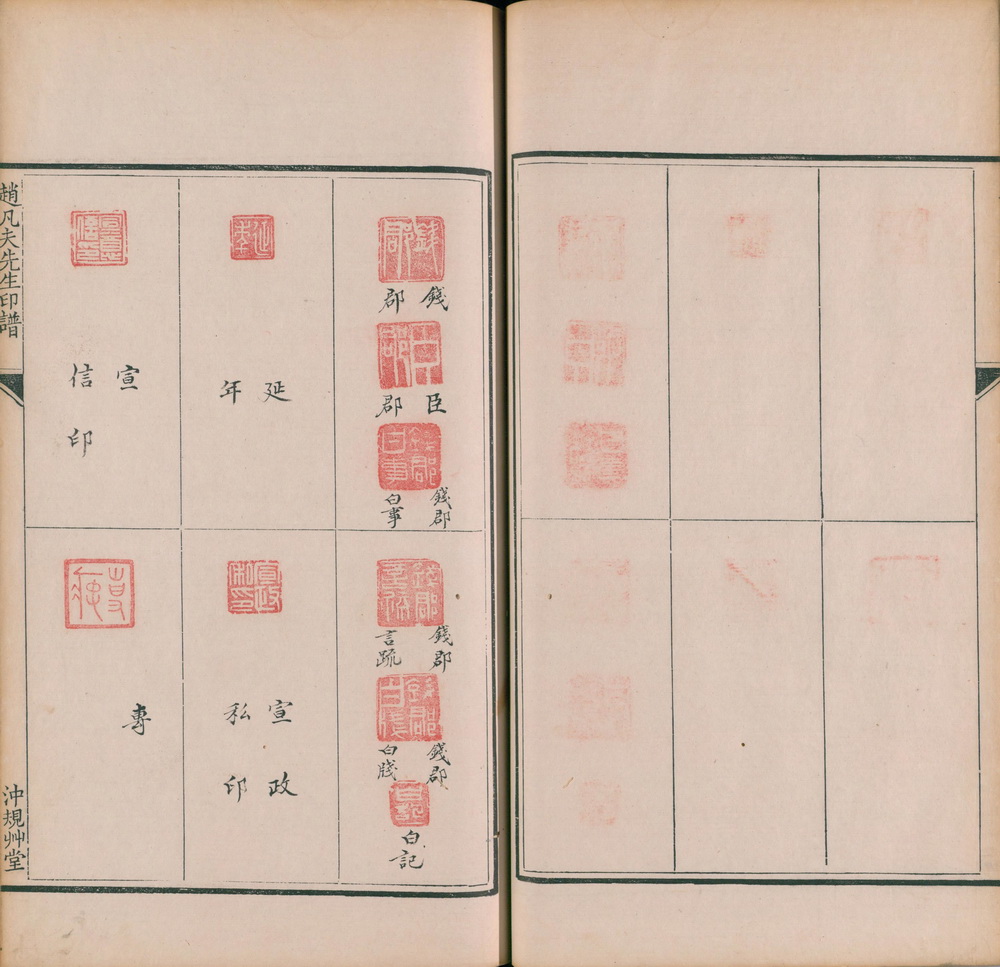 錢
郡
臣
郡
錢郡
白事
錢郡
言䟽
錢郡
白牋
白記
延
年
宣政
私印
宣
信印
專
趙凡夫先生印譜
沖規艸堂